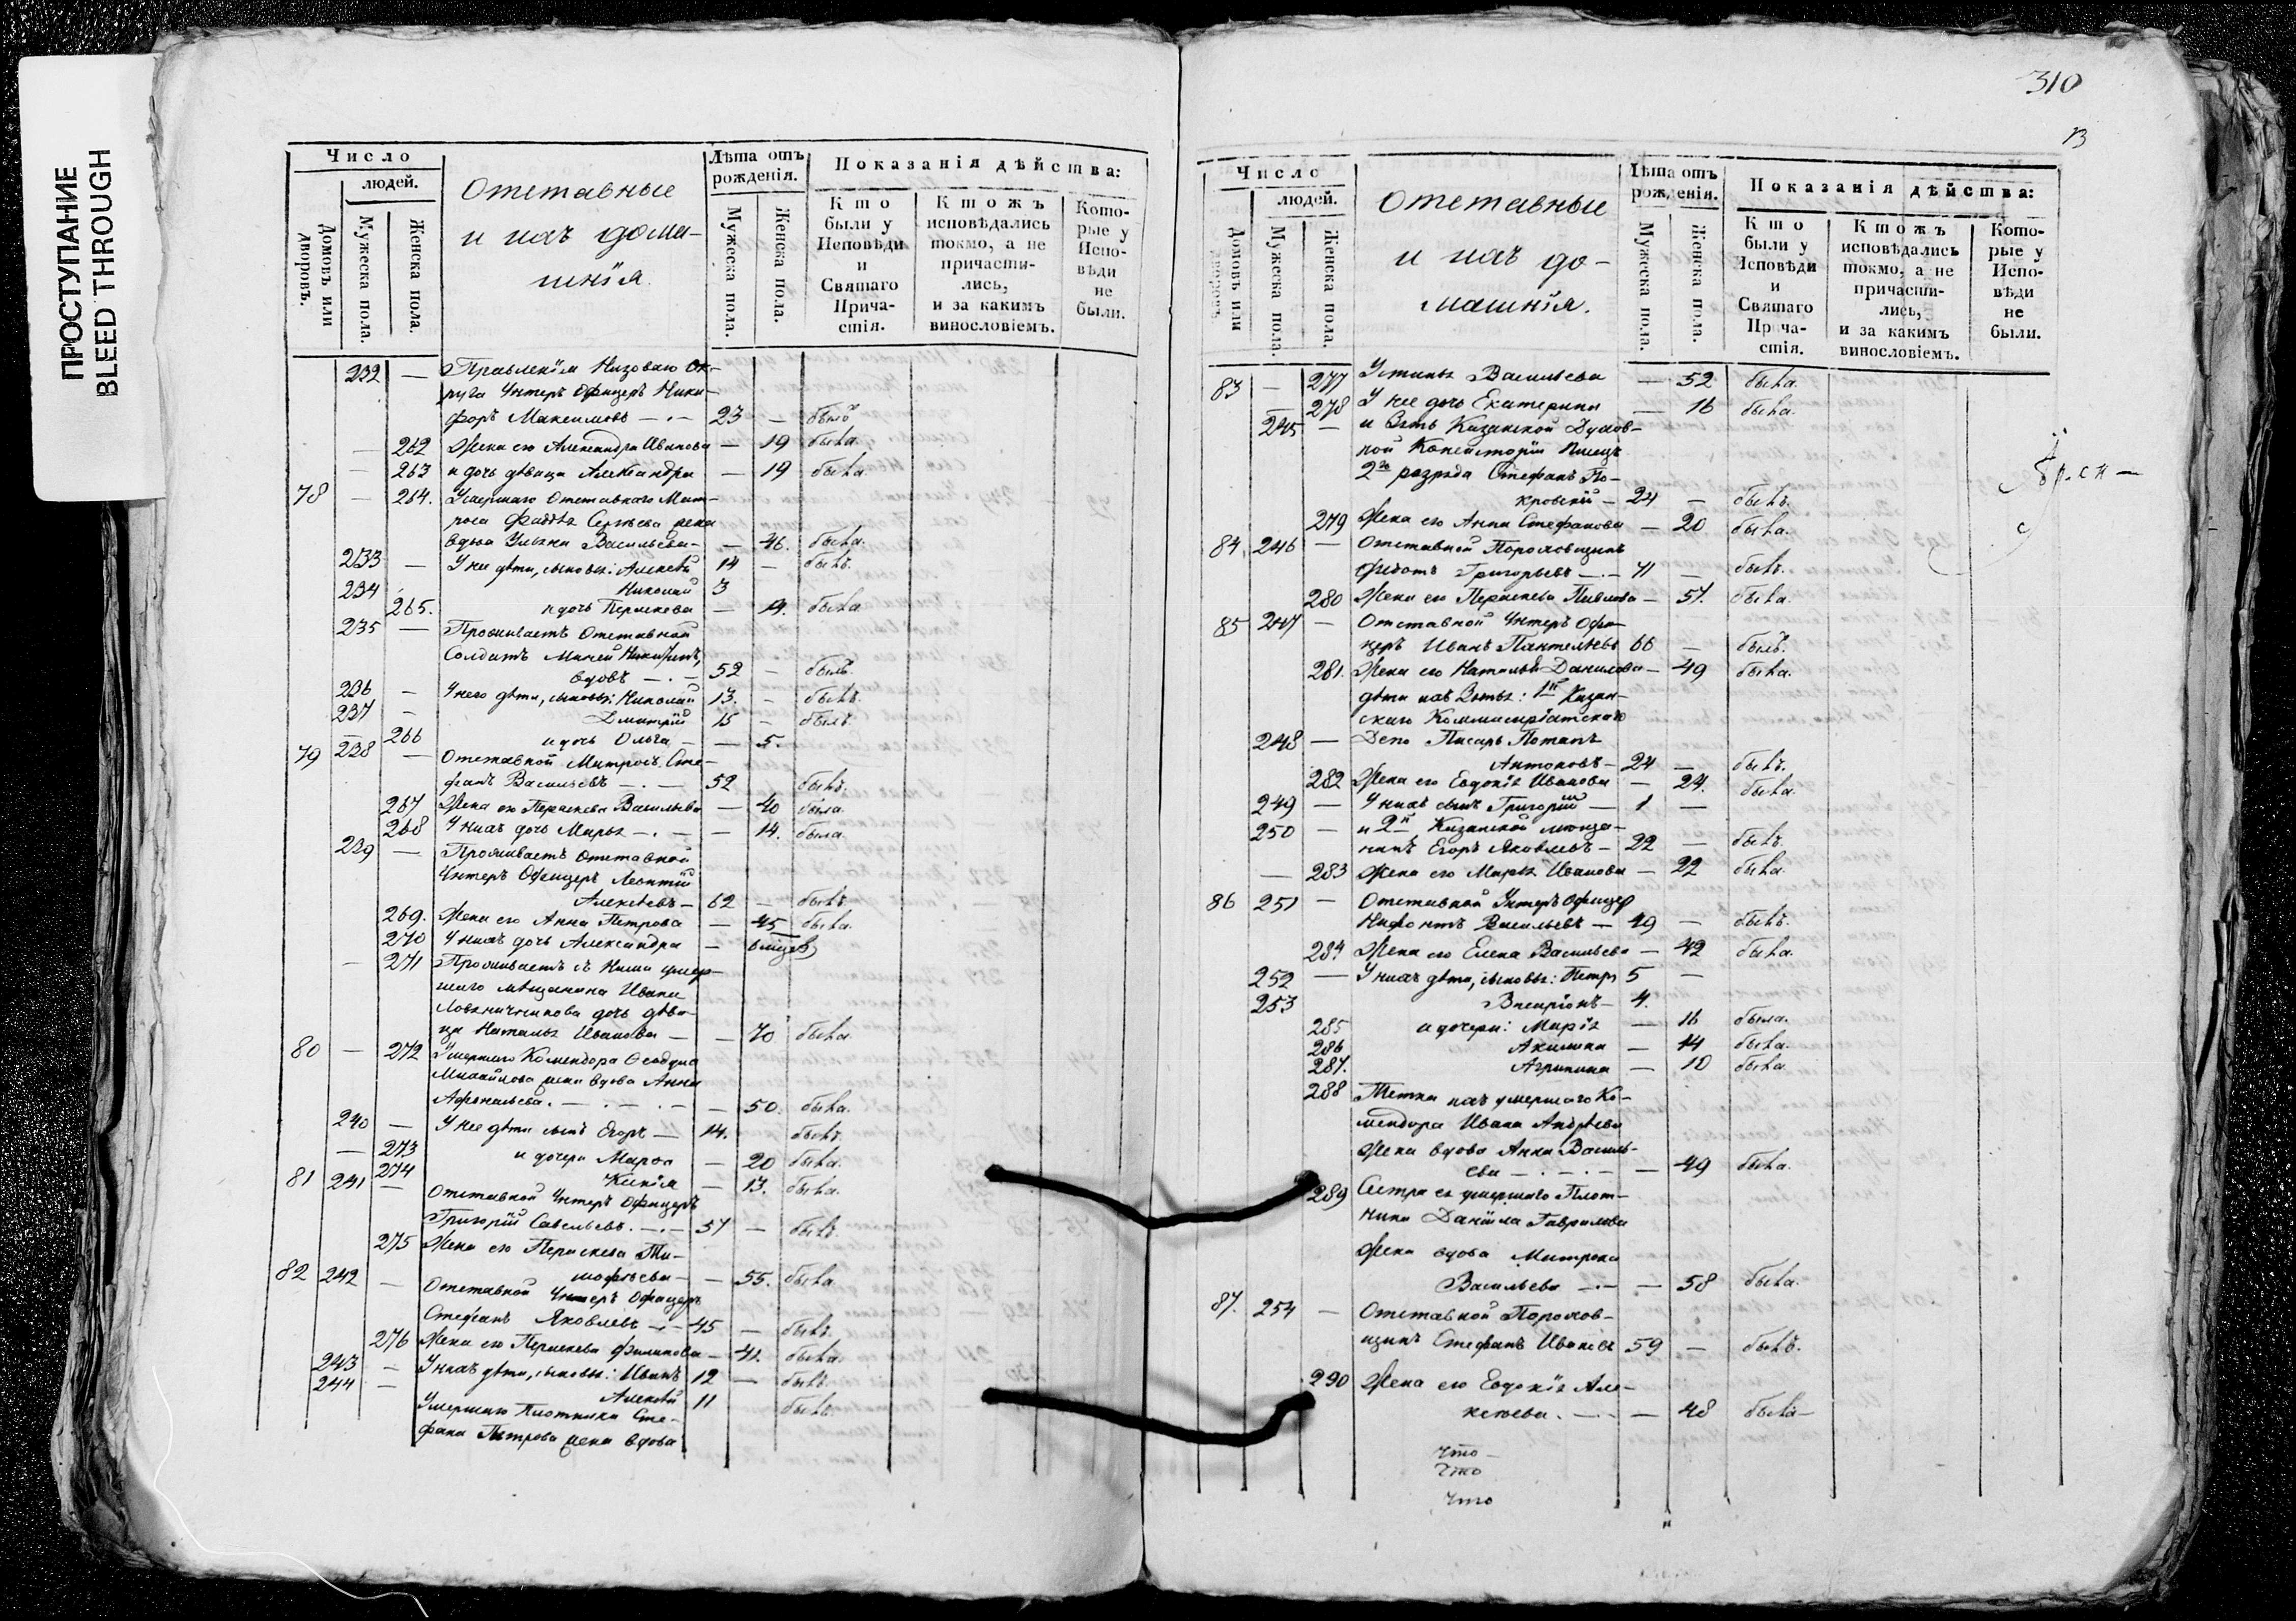 ПРОСТУПАНИЕ
BLEED THROUGH
Число
людей.
Домовъ или дворовъ.
Мужеска пола.
Женска пола.
Отставные
и ихъ дома-
шнія.
Лѣта отъ рожденія.
Мужеска пола.
Женска пола.
Показанія дѣйства:
Кто были у Исповѣди и Святаго Причастія.
Ктожъ исповѣдались токмо, а не причастились, и за какимъ винословіемъ.
Которые у Исповѣди не были.
232 — Правленія Низоваго Ок-
руга Унтеръ Офицеръ Ники-
форъ Максимовъ — 23 — былъ
— 262 Жена его Александра Иванова — 19 была
— 263 и дочь дѣвица Александра — 19 была
78 — 264. Умершаго Отставнаго Мат-
роса Сергѣева жена
вдова Ульяна Васильева — 46. была.
233 — У нее дѣти, сыновья: Алексѣй 14 — былъ.
234 Николай 3
265. и дочь Перасковья — 9. была
235 — Проживаетъ Отставной
Солдатъ
вдовъ — 52 — былъ.
236 — У него дѣти, сыновья: Николай 13. — былъ.
237 — Дмитрій 15 — былъ
266 и дочь Ольга — 5.
79 238 — Отставной Матросъ Сте-
фанъ Васильевъ — 52 былъ.
267 Жена его Параскева Васильева — 40 была
268 У нихъ дочь Марья — 14. была
239 — Проживаетъ Отставной
Унтеръ Офицеръ Леонтій
Алексѣевъ — 62 — былъ.
269. Жена его Анна Петрова — 45 была.
270 У нихъ дочь Александра —
— 271 Проживаетъ съ ними умер-
шаго мѣщанина Ивана
дочь дѣви-
ца Наталья Иванова — 70 была.
80 — 272 Умершаго Комендора Ѳеодула
Михайлова жена вдова Анна
— 50. была.
240 — У нее дѣти сынъ Егоръ — 14. былъ.
— 273 и дочери Марѳа — 20 была.
274 Ксенія — 13. была.
81 241 — Отставной Унтеръ Офицеръ
Григорій Савельевъ. — 57 — былъ.
275 Жена его Параскева Ти-
мофѣева — 55. была
82 242 — Отставной Унтеръ Офицеръ
Стефанъ Яковлевъ — 45 — былъ.
276 Жена его Параскева Филипова — 41. была.
243 — У нихъ дѣти, сыновья: Иванъ 12 — былъ.
244 — Алексѣй 11 былъ.
Умершаго Плотника Сте-
фана Петрова жена вдова
310
Число
людей.
Домовъ или дворовъ.
Мужеска пола.
Женска пола.
Отставные
и ихъ до-
машнія.
Лѣта отъ рожденія.
Мужеска пола.
Женска пола.
Показанія дѣйства:
Кто были у Исповѣди и Святаго Причастія.
Ктожъ исповѣдались токмо, а не причастились, и за какимъ винословіемъ.
Которые у Исповѣди не были.
83 — 277 Устинья Васильева — 52 была.
— 278 У нее дочь Екатерина — 16 была.
245 — и зять Казанской Духов-
ной Консисторіи Писецъ
2го разряда Стефанъ По-
кровскій — 24 — былъ.
279 Жена его Анна Стефанова — 20 была.
84 246 — Отставной Пороховщикъ
Федотъ Григорьевъ — 71 — былъ.
280 Жена его Параскева Павлова — 57. была.
85 247 — Отставной Унтеръ Офи-
церъ Иванъ Пантелѣевъ 66 — былъ.
281. Жена его Наталья Данилова — 49 была.
дѣти ихъ зятья: 1й Казан-
скаго Коммисаріатскаго
248 — Депо Писарь Потапъ
Антоновъ — 24 — былъ.
282 Жена его Евдокія Иванова — 24. была.
249 — У нихъ сынъ Григорій — 1 —
250 — и 2й Казанской мѣща-
нинъ Егоръ Яковлевъ — 22 — былъ.
— 283 Жена его Марья Иванова — 22 была.
86 251 — Отставной Унтеръ Офицеръ
Нифонтъ Васильевъ — 49 — былъ.
284 Жена его Елена Васильева — 42 была.
252 — У нихъ дѣти, сыновья: Петръ 5 —
253 Висаріонъ — 4.
285 и дочери: Марія — 16 была.
286 Акилина — 14 была.
287. Агрипина — 10 была
288 Тетка ихъ умершаго Ко-
мендора Ивана Андрѣева
жена вдова Анна Василь-
ева — 49 была.
289 Сестра ея умершаго Плот-
ника Даніила Гаврилова
жена вдова Матрена
Васильева — 58 была.
87. 254 — Отставной Порохов-
щикъ Стефанъ Ивановъ 59 — былъ.
290 Жена его Евдокія Але-
ксѣева. — 48 была —
что
что
что